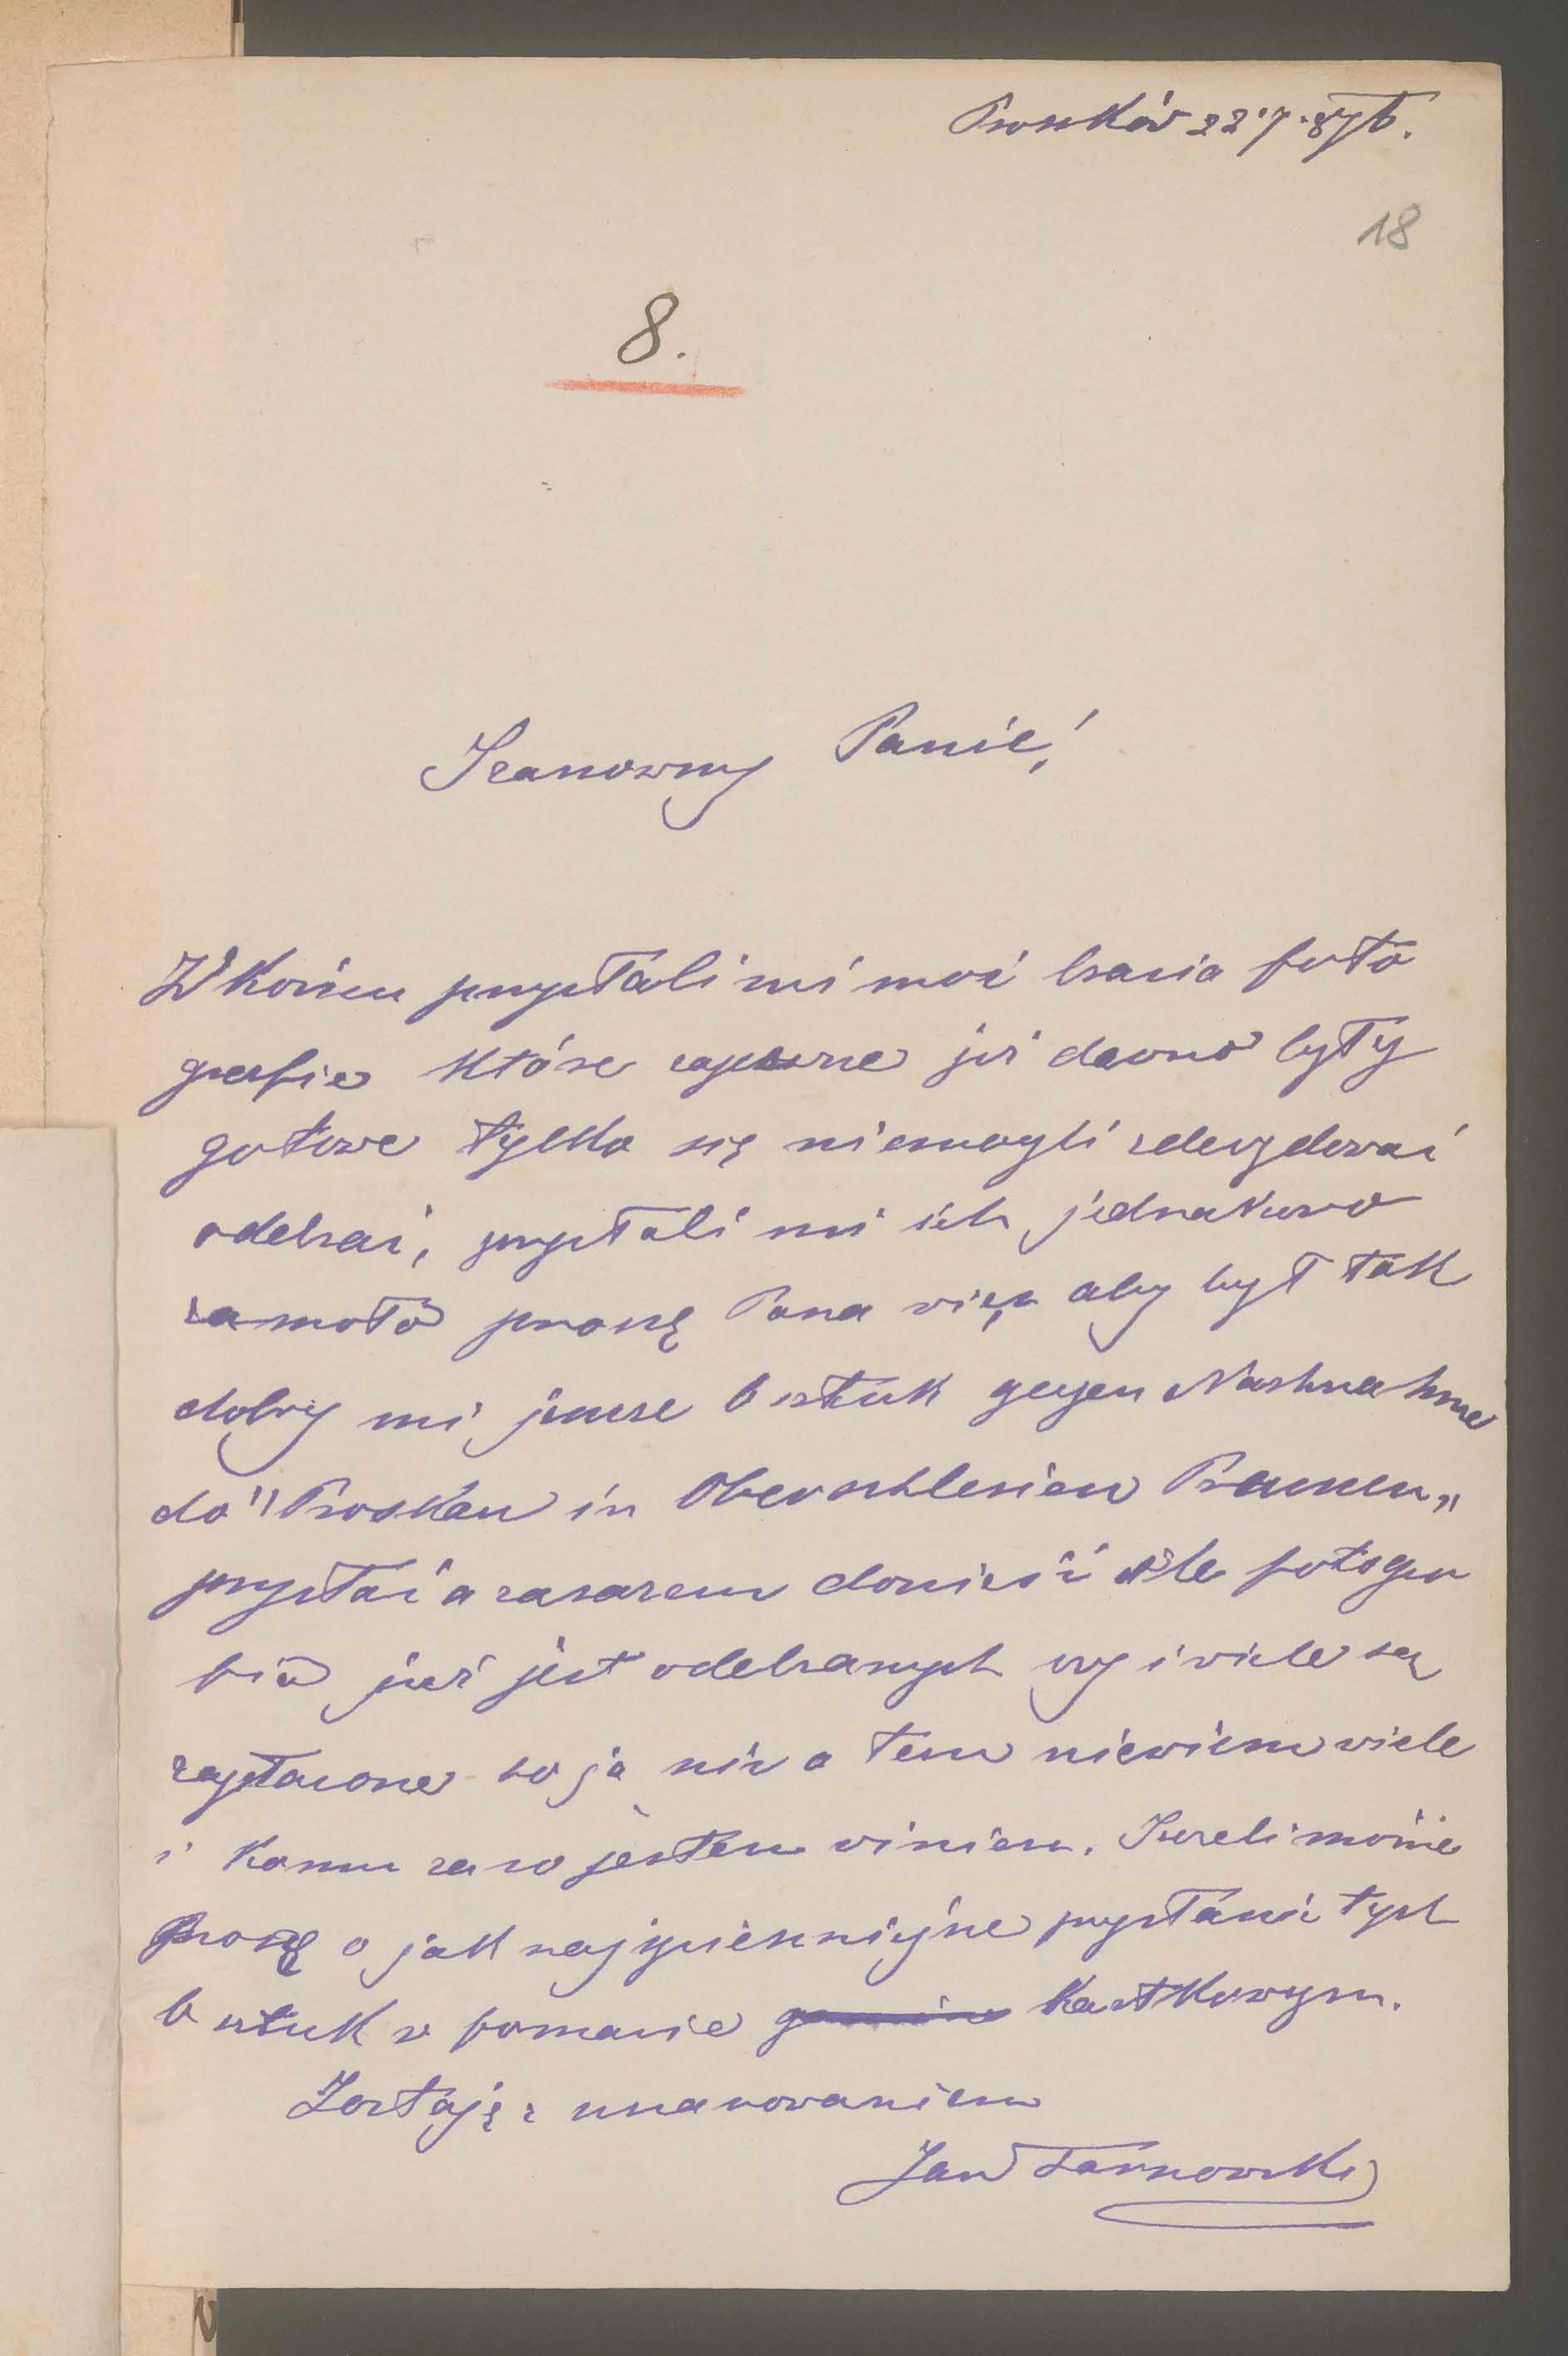 Proszków 22·7·876.
18
8.
Szanowny Panie!
W końcu przysłali mi moi bracia foto
grafie które zapewne już dawno były
gotowe tylko się niemogli zdecydować
odebrać, przysłali mi ich jednakowo
zamoto proszę Pana więc aby był tak
dobry mi jeszcze 6 sztuk gegen Nachnahme
do "Proskau in Oberschlesien Preussen"
przysłać a zarazem donieść ile fotogra
fia już jest odebranych czy i wiele są
zapłacone bo ja nic o tem niewiem wiele
i komu za co jestem winien. Jeżeli możne
Proszę o jak najspieszniejsze przysłanie tych
6 sztuk w formacie kartkowym.
Zostaję z uszanowaniem
Jan Tarnowski